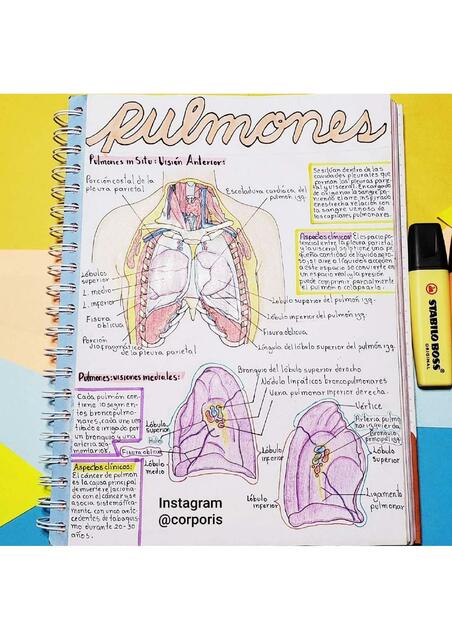 Pulmones
Pulmones in Situ: Visión Anterior:
Porción costal de la
pleura parietal
Escotadura cardíaca del
pulmón izq.
Se sitúan dentro de las
cavidades pleurales que
forman las pleuras parie-
tal y visceral. Encargado
de oxigenar la sangre po-
niendo el aire inspirado
en estrecha relación con
la sangre venosa de
los capilares pulmonares.
Aspectos clínicos: El espacio po-
tencial entre la pleura parietal
y la visceral
si el aire o líquidos acceden
a este espacio se convierte en
un espacio real y la presión
puede comprimir parcialmente
el pulmón o colapsarlo.
Lóbulos
superior
L. medio
L. inferior
Fisura
oblicua
Porción
diafragmática
de la pleura parietal
Lóbulo superior del pulmón izq.
Lóbulo inferior del pulmón izq.
Fisura oblicua
Língula del lóbulo superior del pulmón izq.
Pulmones: visiones mediales:
Bronquio del lóbulo superior derecho
Nódulo linfáticos broncopulmonares
Vena pulmonar inferior derecha.
Cada pulmón con-
tiene 10 segmen-
tos broncopulmo-
nares, cada uno ven-
tilado e irrigado por
un bronquio y una
arteria seg-
mentarios.
Lóbulo
superior
Hilio
Fisura oblicua
Lóbulo
medio
Lóbulo
inferior
Vértice
Arteria pulmo-
nar izquierda
Bronquio
principal izq.
Lóbulo
superior
Ligamento
pulmonar
Lóbulo
inferior
Aspectos clínicos:
El cáncer de pulmón
es la causa principal
de muerte relaciona-
da con el cáncer y se
asocia sistemática-
mente con unos ante-
cedentes de tabaquis-
mo durante 20-30
años.
Instagram
@corporis
STABILO BOSS
ORIGINAL